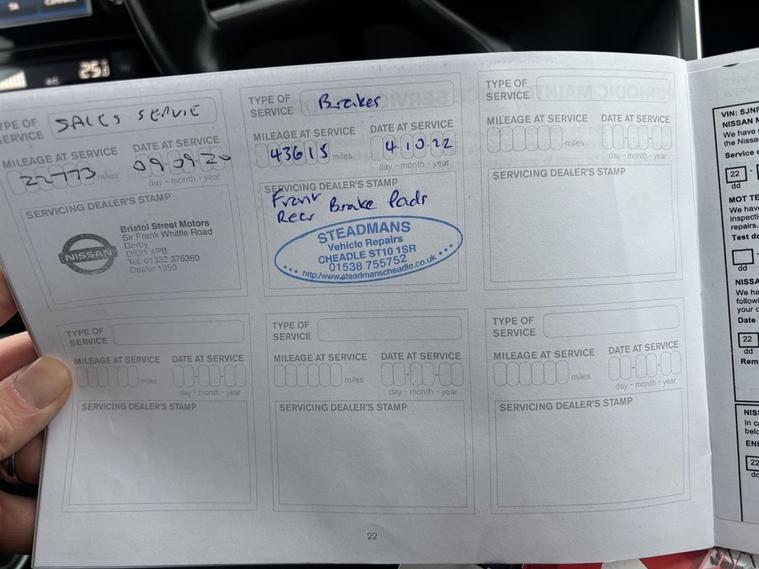 25
TYPE OF SERVICE SALES SERVICE
MILEAGE AT SERVICE DATE AT SERVICE
22773 miles 09.09.20
day - month - year
SERVICING DEALER'S STAMP
NISSAN
Bristol Street Motors
Sir Frank Whittle Road
Derby
DE21 4PB
Tel. 01332 375360
Dealer 1950
TYPE OF SERVICE Brakes
MILEAGE AT SERVICE DATE AT SERVICE
43615 miles 4 10.22
day - month - year
SERVICING DEALER'S STAMP
Front
Rear Brake Pads
STEADMANS
Vehicle Repairs
CHEADLE ST10 1SR
01538 755752
http://www.steadmanscheadle.co.uk
TYPE OF SERVICE
MILEAGE AT SERVICE DATE AT SERVICE
miles
day - month - year
SERVICING DEALER'S STAMP
TYPE OF SERVICE
MILEAGE AT SERVICE DATE AT SERVICE
miles
day - month - year
SERVICING DEALER'S STAMP
TYPE OF SERVICE
MILEAGE AT SERVICE DATE AT SERVICE
miles
day - month - year
SERVICING DEALER'S STAMP
TYPE OF SERVICE
MILEAGE AT SERVICE DATE AT SERVICE
miles
day - month - year
SERVICING DEALER'S STAMP
22
VIN: SJNF
NISSAN M
We have
the Nissan
Service
22
dd
MOT TE
We have
inspecti
repairs.
Test da
dd
NISSA
We ha
followi
your c
Date
22
dd
Rem
NISS
In ca
belo
EN
22
dd